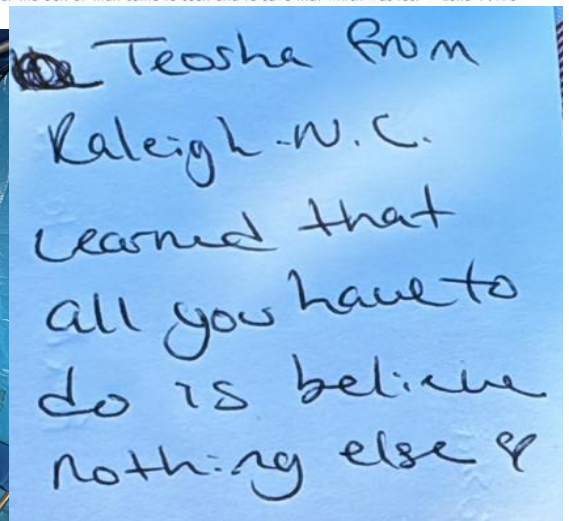 Teosha from
Raleigh-N.C.
Learned that
all you have to
do is believe
nothing else